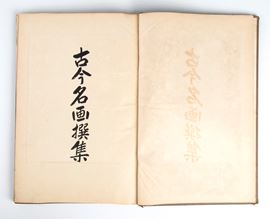 古今名画撰集